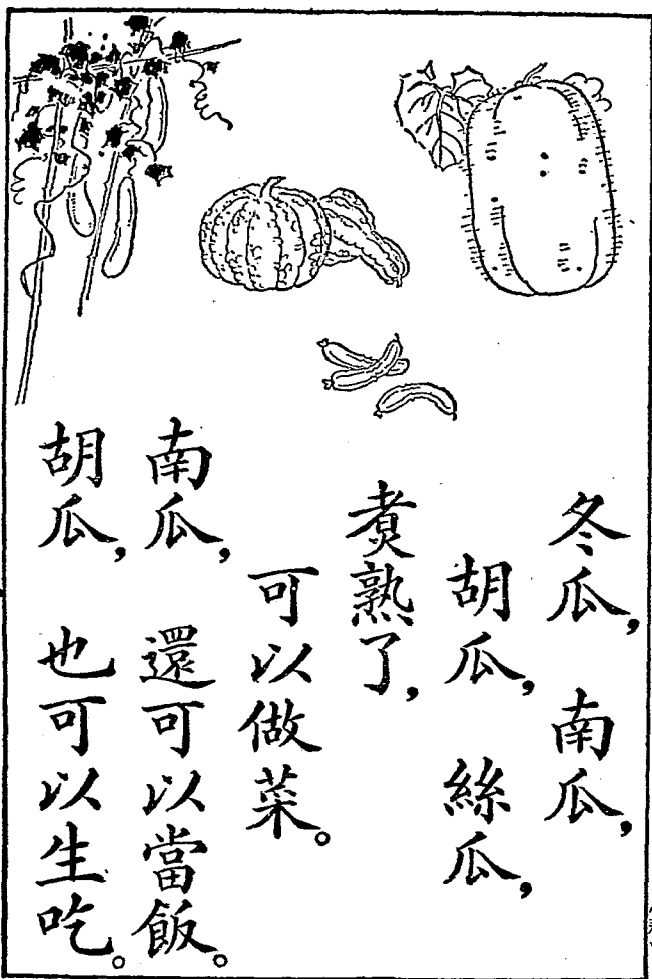 冬瓜，南瓜，
胡瓜，絲瓜，
煮熟了，
可以做菜。
南瓜，還可以當飯。
胡瓜，也可以生吃。